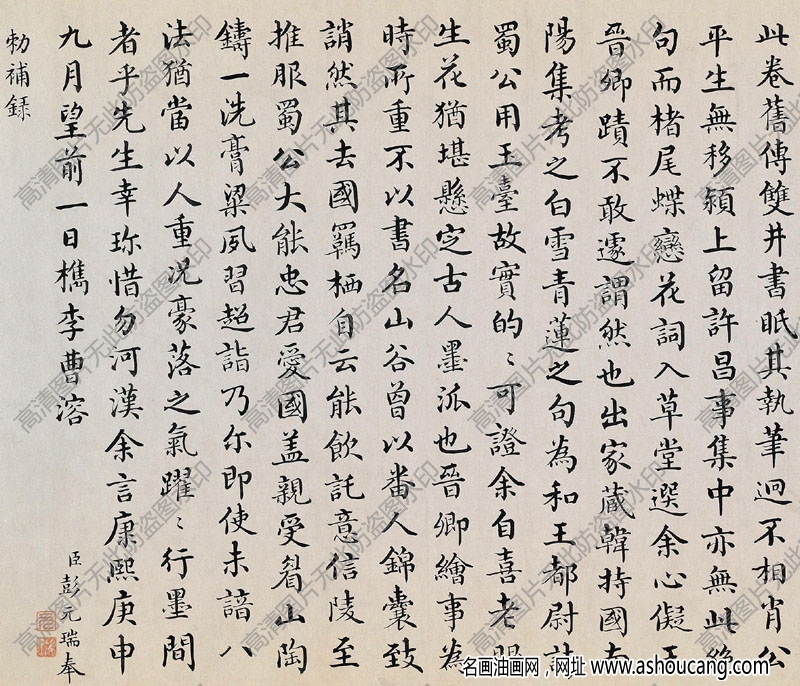 此卷舊傳雙井書眂其執筆迥不相肖公
平生無移潁上留許昌事集中亦無此絕
句而楮尾蝶戀花詞入草堂選余心儗王
晉卿蹟不敢遽謂然也出家藏韓持國南
陽集考之白雪青蓮之句為和王都尉詩
蜀公用王臺故實的〻可證余自喜老眼
生花猶堪懸定古人墨派也晉卿繪事為
時所重不以書名山谷曾以番人錦囊致
誚然其去國羈栖自云能飲託意信陵至
推服蜀公大能忠君愛國蓋親受眉山陶
鑄一洗膏粱夙習超詣乃尔即使未諳八
法猶當以人重況豪落之氣躍〻行墨間
者乎先生幸珍惜勿河漢余言康熙庚申
九月望前一日檇李曹溶
臣彭元瑞奉
勅補錄
高清图片无此防盗图水印
名画油画网，网址 www.ashoucang.com